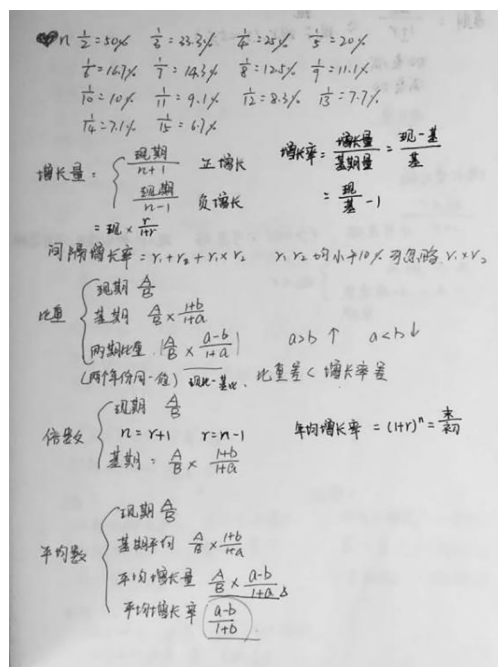 n 1/2=50% 1/3=33.3% 1/4=25% 1/5=20%
1/6=16.7% 1/7=14.3% 1/8=12.5% 1/9=11.1%
1/10=10% 1/11=9.1% 1/12=8.3% 1/13=7.7%
1/14=7.1% 1/15=6.7%
增长量: { 现期/(n+1) 正增长
现期/(n-1) 负增长
=现×r/(1+r)
增长率=增长量/基期量=(现-基)/基
=现/基-1
间隔增长率=r₁+r₂+r₁×r₂ r₁ r₂均小于10%可忽略r₁×r₂
比重 { 现期 A/B
基期 A/B×(1+b)/(1+a)
两期比重 |A/B×(a-b)/(1+a)| a>b↑ a<b↓
(两个年份同一值) 现比-基比. 比重差<增长率差
倍数 { 现期 A/B
n=r+1 r=n-1
基期=A/B×(1+b)/(1+a)
年均增长率=(1+r)ⁿ=末/初
平均数 { 现期 A/B
基期平均 A/B×(1+b)/(1+a)
平均增长量 A/B×(a-b)/(1+a)
平均增长率 (a-b)/(1+b)